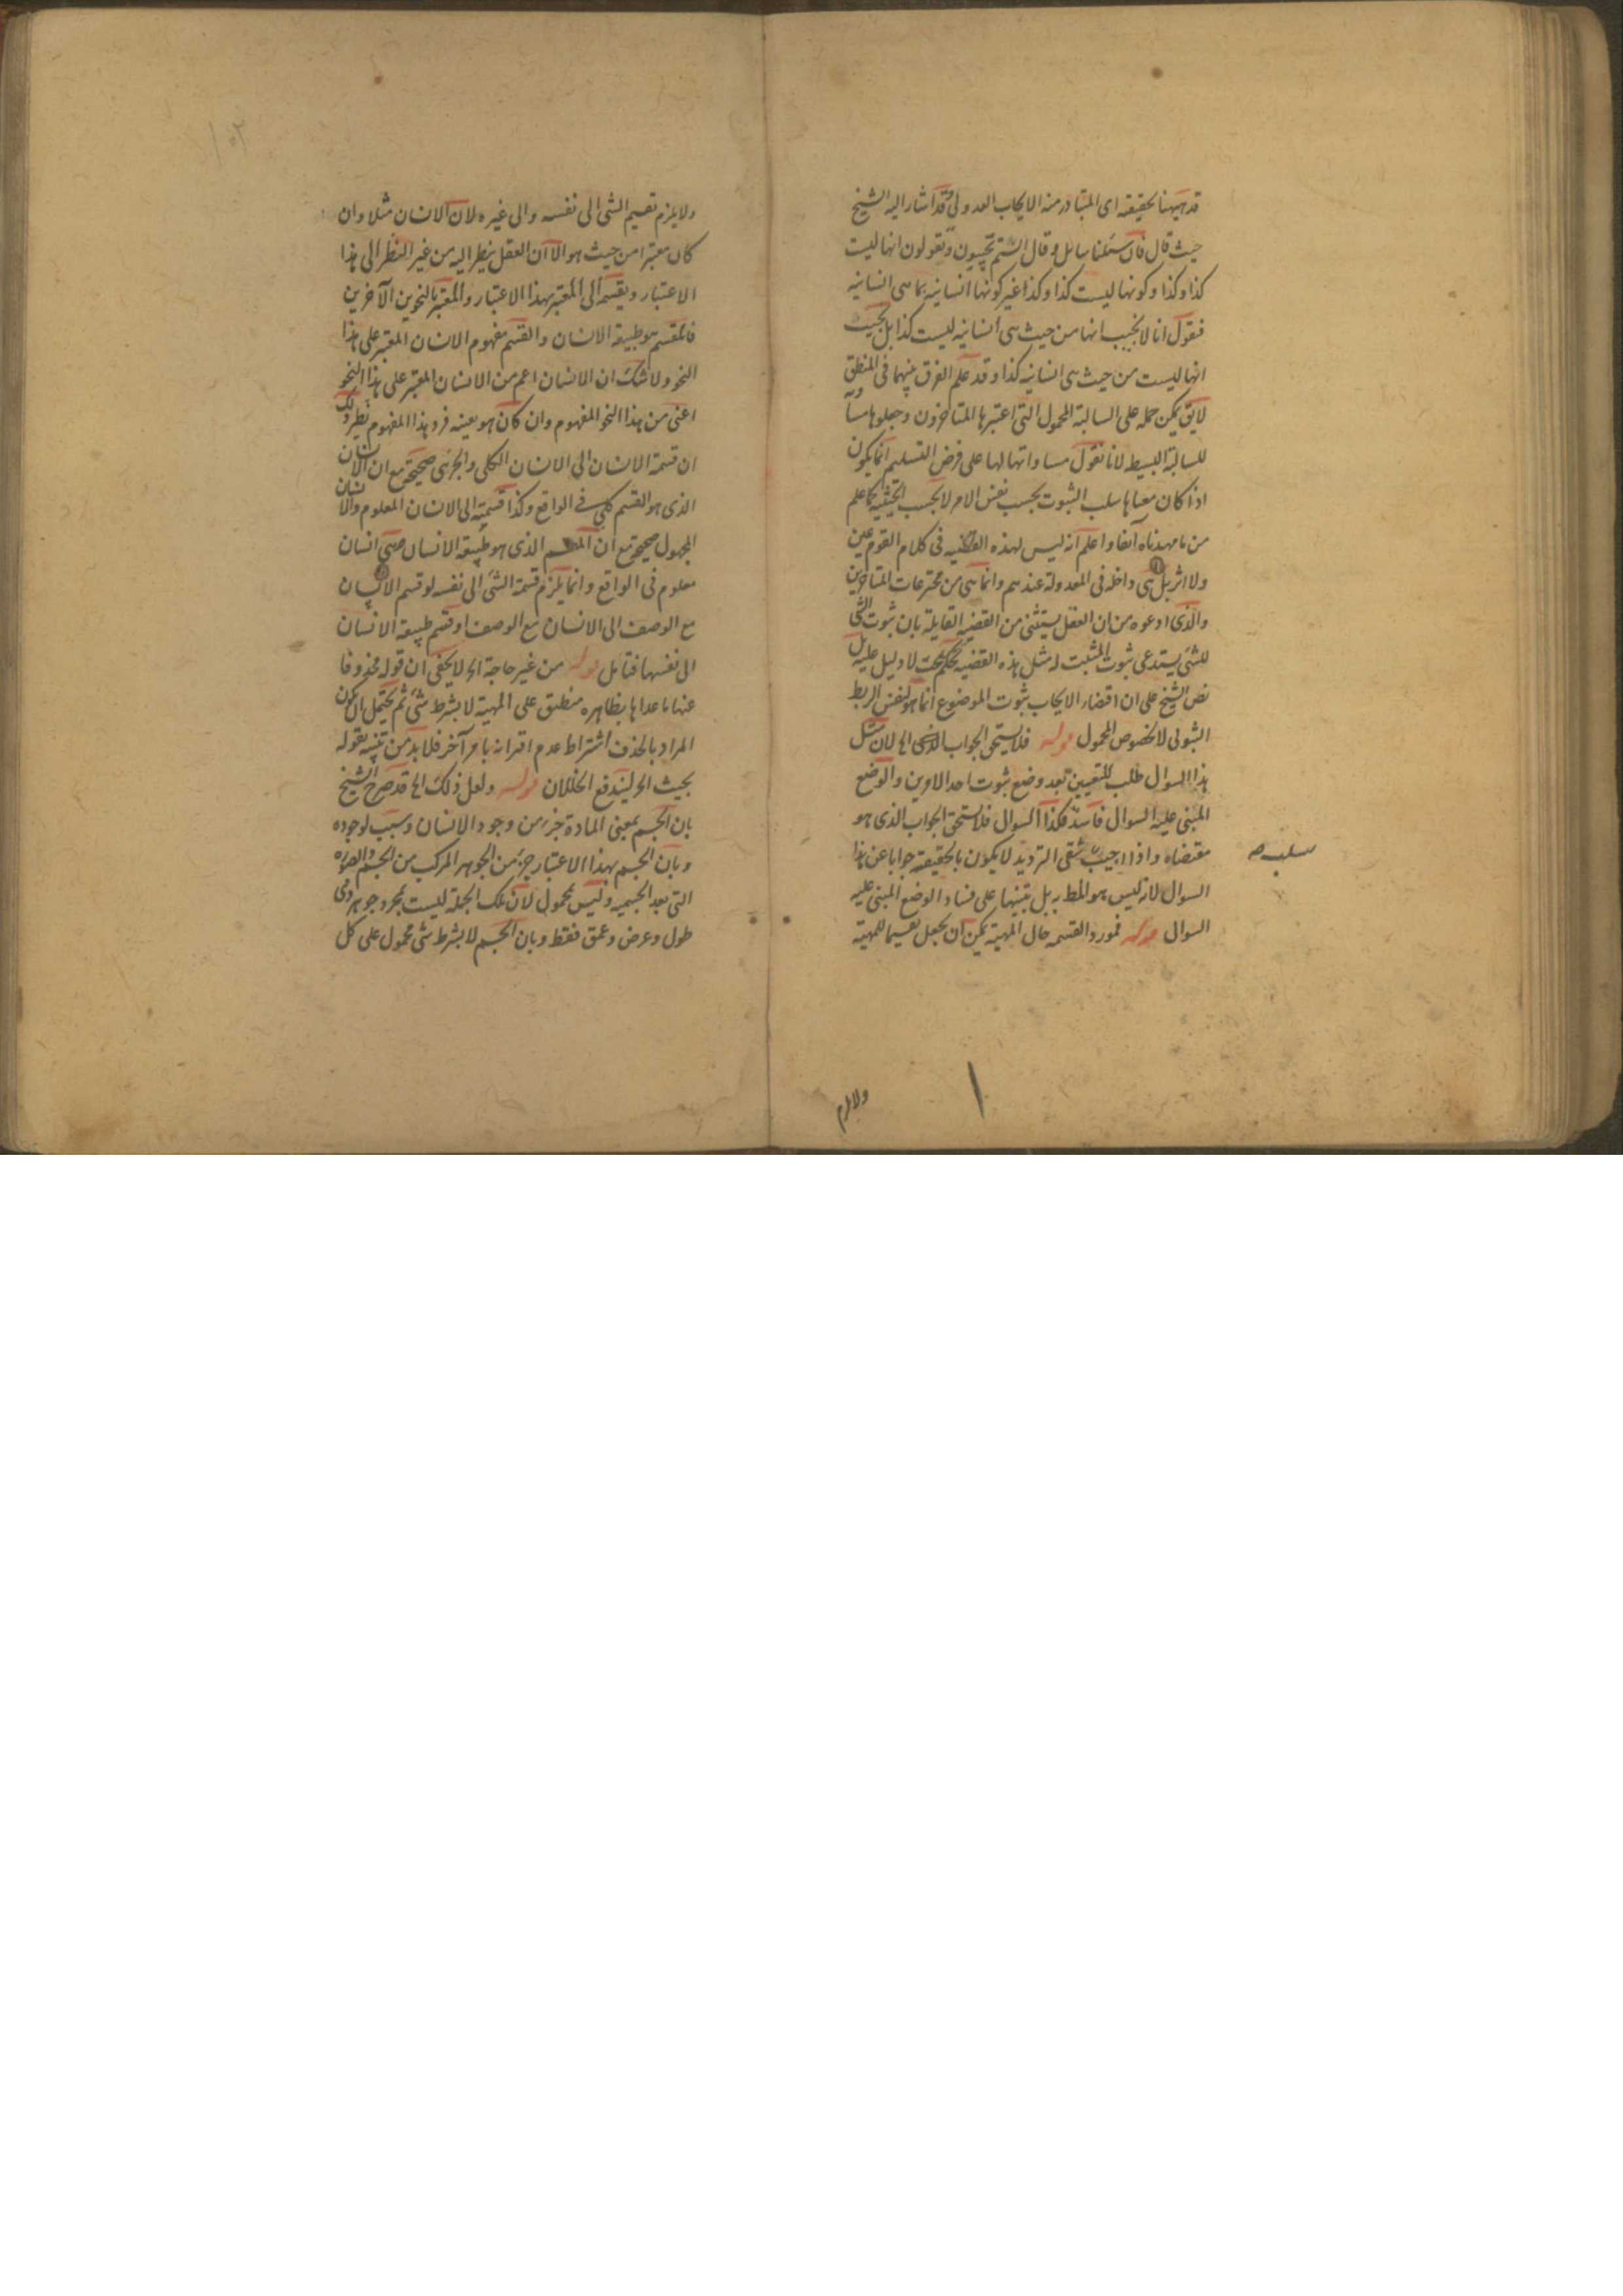 قد ههنا بحقيقة اى المتبادر منه الايجاب العدولى وقد اشار اليه الشيخ
حيث قال فان سئلنا سائل و قال الستم تجيبون و تقولون انها ليست
كذا وكذا وكونها ليست كذا وكذا غير كونها انسانية بما هى انسانية
فنقول انا لا نجيب انها من حيث هى انسانية ليست كذا بل نجيب
انها ليست من حيث هى انسانية كذا وقد علم الفرق بينهما فى المنطق
لايق يمكن حمله على السالبة المحمول التى اعتبرها المتاخرون وجعلوها مساوية
للسالبة البسيطه لانا نقول مساواتها لها على فرض التسليم انما يكون
اذا كان معناها سلب الثبوت بحسب نفس الامر لا بحسب الحيثية كما علم
من ما مهدناه آنفا واعلم انه ليس لهذه القضيه فى كلام القوم عين
ولا اثر بل هى داخله فى المعدولة عندهم وانما هى من مخترعات المتاخرين
والذى ادعوه من ان العقل يستثنى من القضية القايلة بان ثبوت الشى
للشئ يستدعى ثبوت المثبت له مثل هذه القضيه تحكم بحت لا دليل عليه بل
نص الشيخ على ان اقتضاء الايجاب ثبوت الموضوع انما هو لنفس الربط
الثبوتى لا لخصوص المحمول قوله فلا يستحق الجواب الذى الخ لان مثل
هذا السوال طلب للتعيين بعد وضع ثبوت احد الامرين والوضع
المبنى عليه السوال فاسد فكذا السوال فلا يستحق الجواب الذى هو
مقتضاه واذا اجيب بشقى الترديد لا يكون بالحقيقة جوابا عن هذا
سلب صح
السوال لانه ليس هو المط به بل تنبيها على فساد الوضع المبنى عليه
السوال قوله فمورد القسمه حال المهية يمكن ان يجعل تقسيما للمهية
ولا يلزم
ولا يلزم تقسيم الشى الى نفسه والى غيره لان الانسان مثلا وان
كان معتبرا من حيث هو الا ان العقل ينظر اليه من غير النظر الى هذا
الاعتبار ويقسمه الى المعتبر بهذا الاعتبار والمعتبر بالنحوين الآخرين
فالمقسم هو طبيعة الانسان والقسم مفهوم الانسان المعتبر على هذا
النحو ولا شك ان الانسان اعم من الانسان المعتبر على هذا النحو
اعنى من هذا النحو المفهوم وان كان هو بعينه فرد هذا المفهوم نظير ذلك
ان قسمة الانسان الى الانسان الكلى والجزئى صحيحة مع ان الانسان
الذى هو القسم كلى فى الواقع وكذا قسمته الى الانسان المعلوم والانسان
المجهول صحيحة مع ان المقسم الذى هو طبيعة الانسان حتى انسان
معلوم فى الواقع وانما يلزم قسمة الشئ الى نفسه لو قسم الانسان
مع الوصف الى الانسان مع الوصف او قسم طبيعة الانسان
الى نفسها فتامل قوله من غير حاجة الخ لا يخفى ان قوله محذوفا
عنها ما عداها بظاهره منطبق على المهية لا بشرط شئ ثم يحتمل ان يكون
المراد بالحذف اشتراط عدم اقترانه بامر آخر فلا بد من تنبيه بقوله
بحيث الخ ليندفع الخللان قوله ولعل ذلك الخ قد صرح الشيخ
بان الجسم بمعنى المادة جزء من وجود الانسان وسبب لوجوده
وبان الجسم بهذا الاعتبار جزء من الجوهر المركب من الجسم والصورة
التى بعد الجسميه وليس بمحمول لان تلك الجملة ليست بمجرد جوهر ذى
طول وعرض وعمق فقط وبان الجسم لا بشرط شى محمول على كل